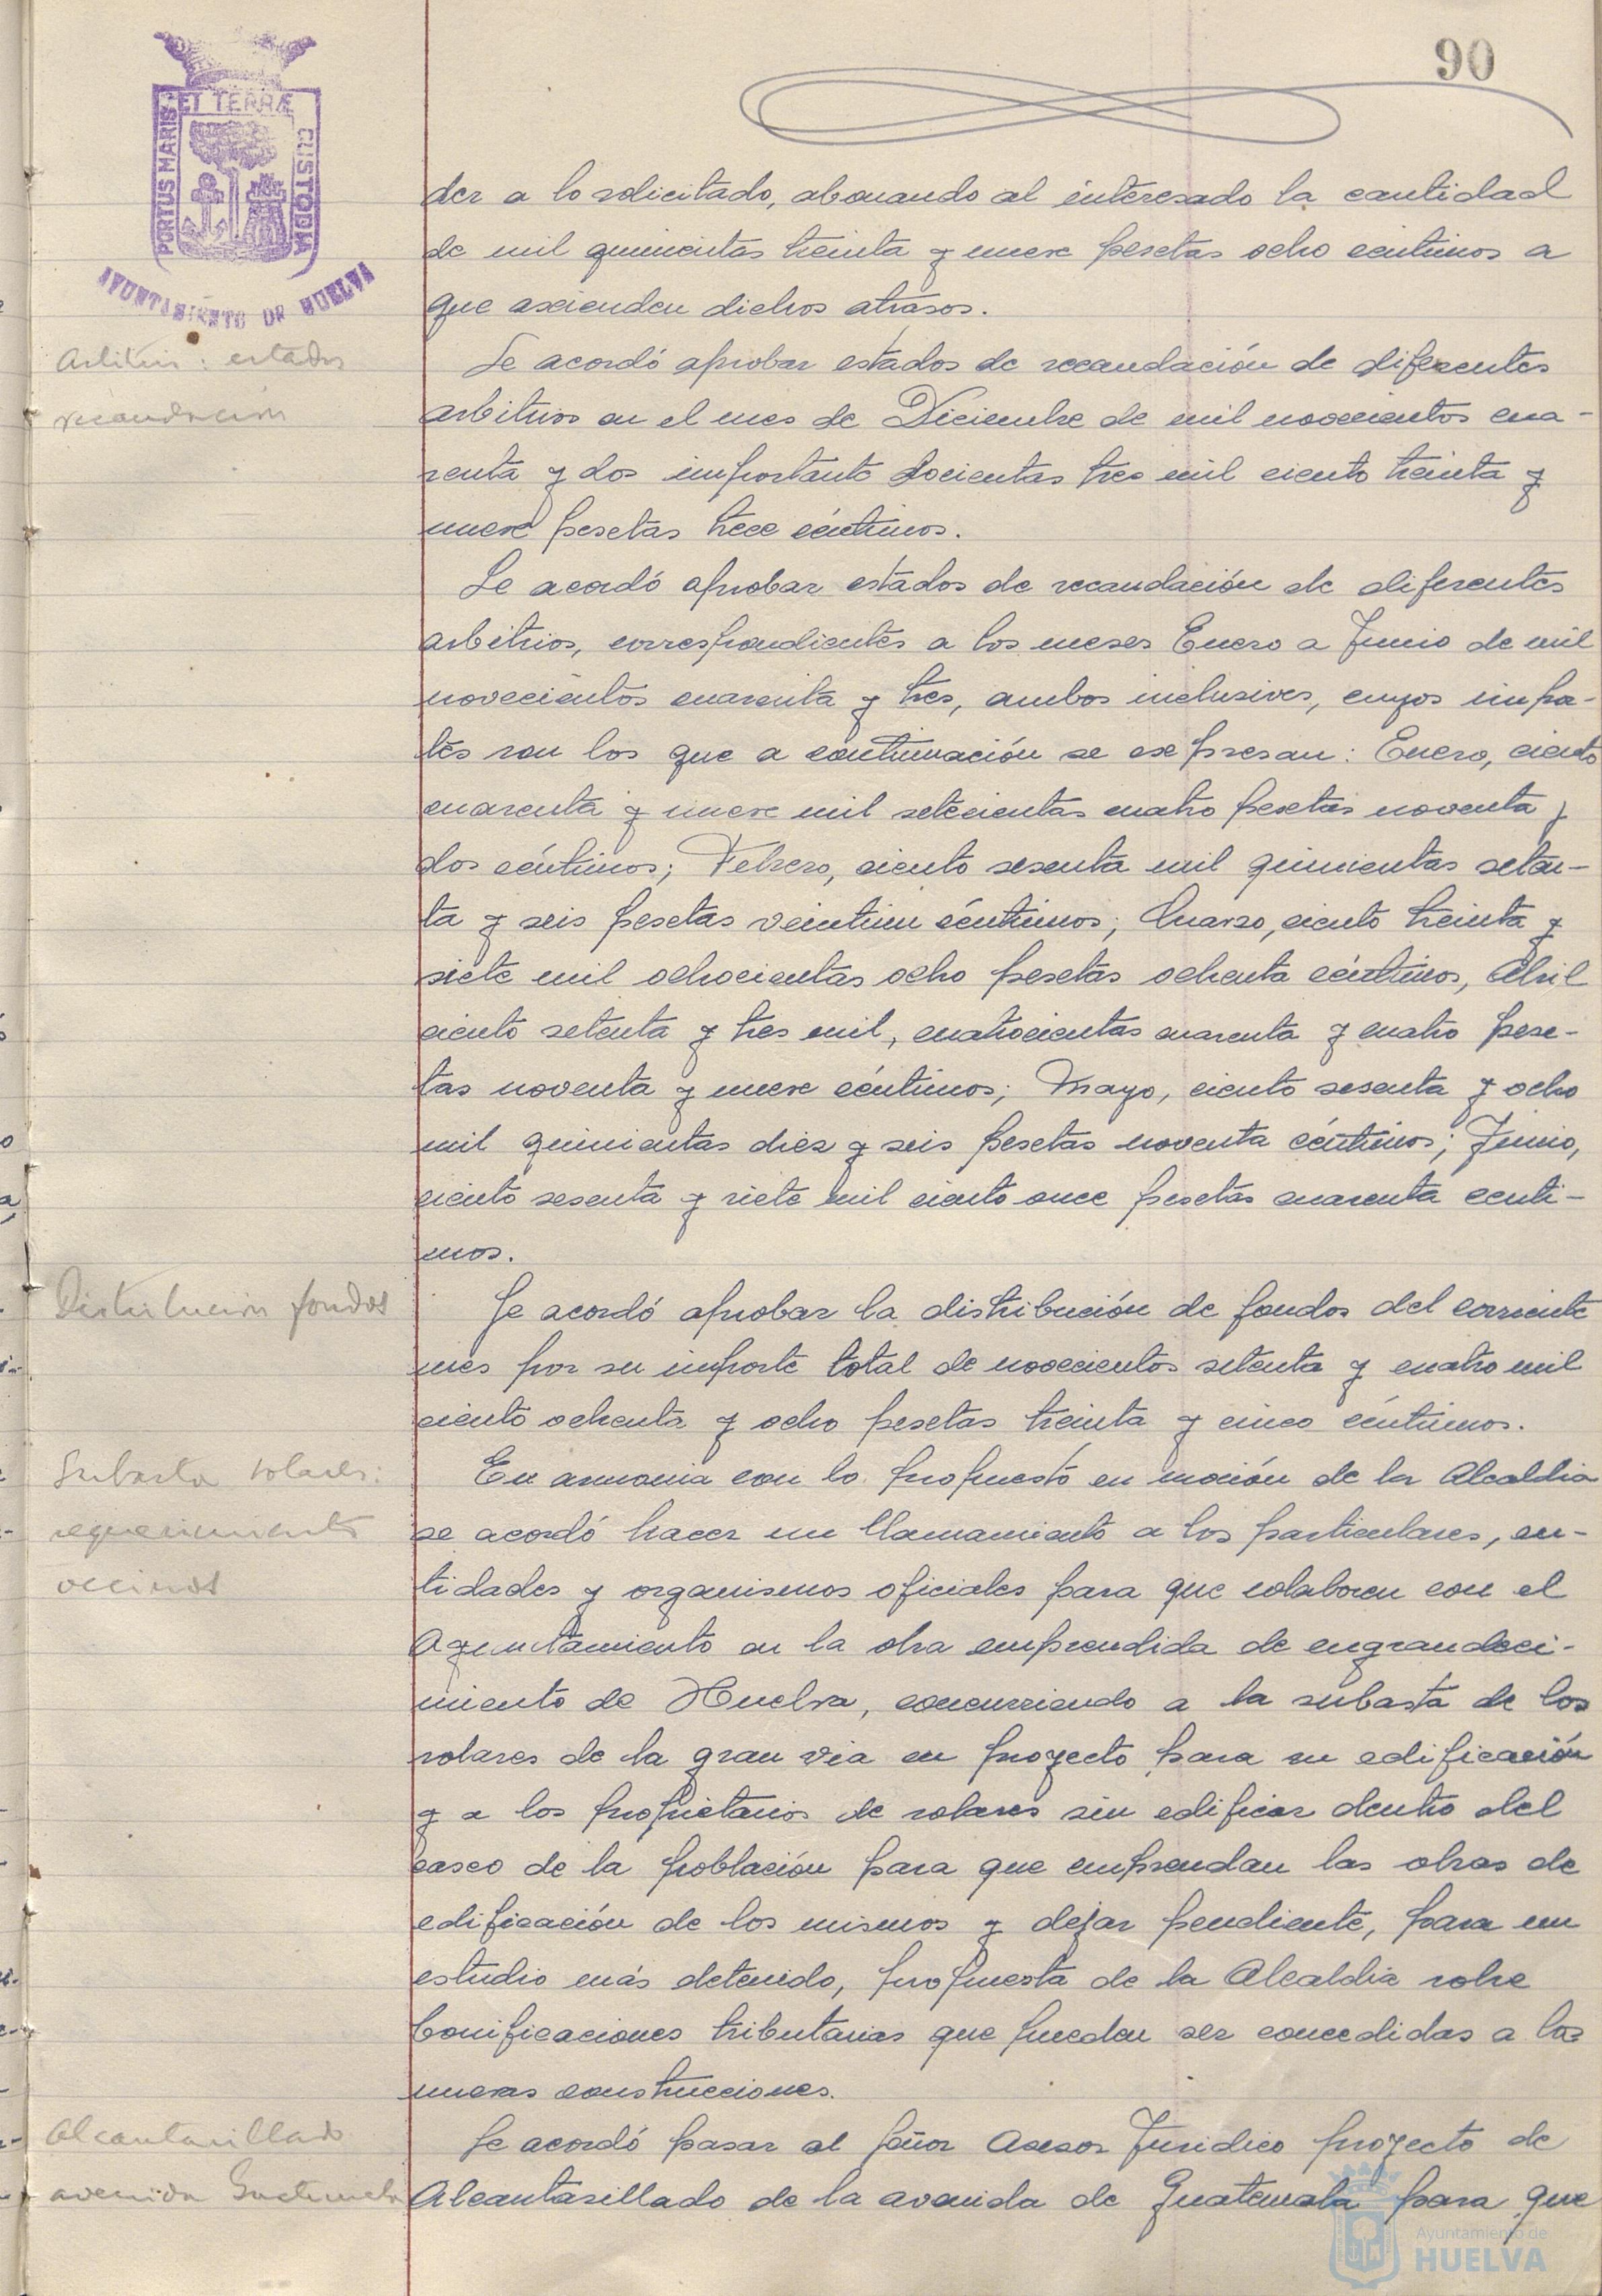 90
PORTUS MARIS ET TERRÆ CUSTODIA
AYUNTAMIENTO DE HUELVA
der a lo solicitado, abonando al interesado la cantidad
de mil quinientas treinta y nueve pesetas ocho centimos a
que ascienden dichos atrasos.
Arbitrios: estados
recaudación
Se acordó aprobar estados de recaudación de diferentes
arbitrios en el mes de Diciembre de mil novecientos cua-
renta y dos importante docientas tres mil ciento treinta y
nueve pesetas trece céntimos.
Se acordó aprobar estados de recaudación de diferentes
arbitrios, correspondientes a los meses Enero a Junio de mil
novecientos cuarenta y tres, ambos inclusives, cuyos impo-
tes son los que a continuación se expresan: Enero, ciento
cuarenta y nueve mil setecientas cuatro pesetas noventa y
dos céntimos; Febrero, ciento sesenta mil quinientas seten-
ta y seis pesetas veintiun céntimos; Marzo, ciento treinta y
siete mil ochocientas ocho pesetas ochenta céntimos, Abril
ciento setenta y tres mil, cuatrocientas cuarenta y cuatro pese-
tas noventa y nueve céntimos; Mayo, ciento sesenta y ocho
mil quinientas diez y seis pesetas noventa céntimos; Junio,
ciento sesenta y siete mil ciento once pesetas cuarenta centi-
mos.
Distribución fondos
Se acordó aprobar la distribución de fondos del corriente
mes por su importe total de novecientos setenta y cuatro mil
ciento ochenta y ocho pesetas treinta y cinco céntimos.
Subasta solares:
requerimiento
vecinos
En armonia con lo propuesto en moción de la Alcaldia
se acordó hacer un llamamiento a los particulares, en-
tidades y organismos oficiales para que colaboren con el
Ayuntamiento en la obra emprendida de engrandeci-
miento de Huelva, concurriendo a la subasta de los
solares de la gran via en proyecto para su edificación
y a los propietarios de solares sin edificar dentro del
casco de la población para que emprendan las obras de
edificación de los mismos y dejar pendiente, para un
estudio más detenido, propuesta de la Alcaldia sobre
bonificaciones tributarias que pueden ser concedidas a las
nuevas construcciones.
Alcantarillado
avenida Guatemala
Se acordó pasar al señor Asesor Juridico proyecto de
Alcantarillado de la avenida de Guatemala para que
Ayuntamiento de
HUELVA